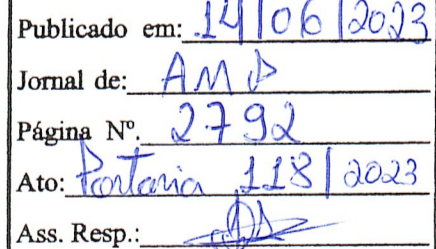 Publicado em: 14/06/2023
Jornal de: AMP
Página Nº. 2792
Ato: Portaria 118/2023
Ass. Resp.: